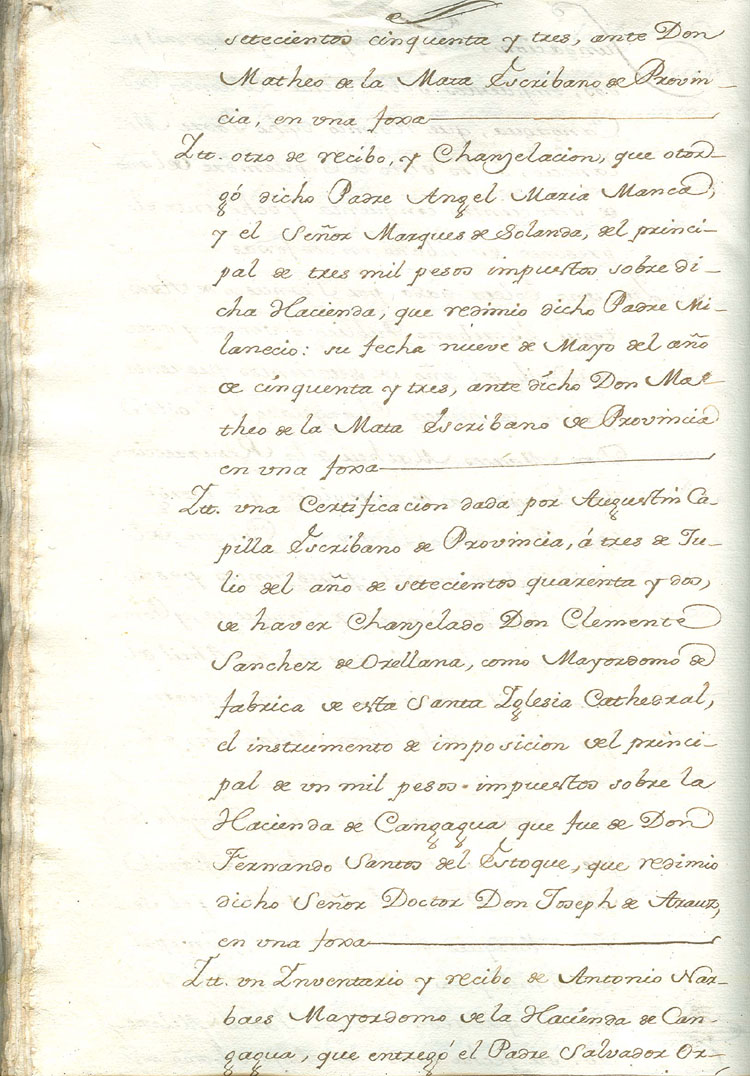 setecientos cinquenta y tres, ante Don
Matheo de la Mata Escribano de Provin-
cia, en vna foxa
Itt. otro de recibo, y Chanzelacion, que otor-
gó dicho Padre Angel Maria Manca,
y el Señor Marques de Solanda, del princi-
pal de tres mil pesos impuestos sobre di-
cha Hacienda, que redimio dicho Padre Mi-
lanecio: su fecha nueve de Mayo del año
de cinquenta y tres, ante dicho Don Ma-
theo de la Mata Escribano de Provincia
en vna foxa
Itt. vna Certificacion dada por Augustin Ca-
pilla Escribano de Provincia, á tres de Ju-
lio del año de setecientos quarenta y dos,
de haver Chanzelado Don Clemente
Sanchez de Orellana, como Mayordomo de
fabrica de esta Santa Iglesia Cathedral,
el instrumento de imposicion del princi-
pal de vn mil pesos impuestos sobre la
Hacienda de Cangagua que fue de Don
Fernando Santos del Estoque, que redimio
dicho Señor Doctor Don Joseph de Arauz,
en vna foxa
Itt. vn Inventario y recibo de Antonio Nar-
baes Mayordomo de la Hacienda de Can-
gagua, que entregó el Padre Salvador Or-